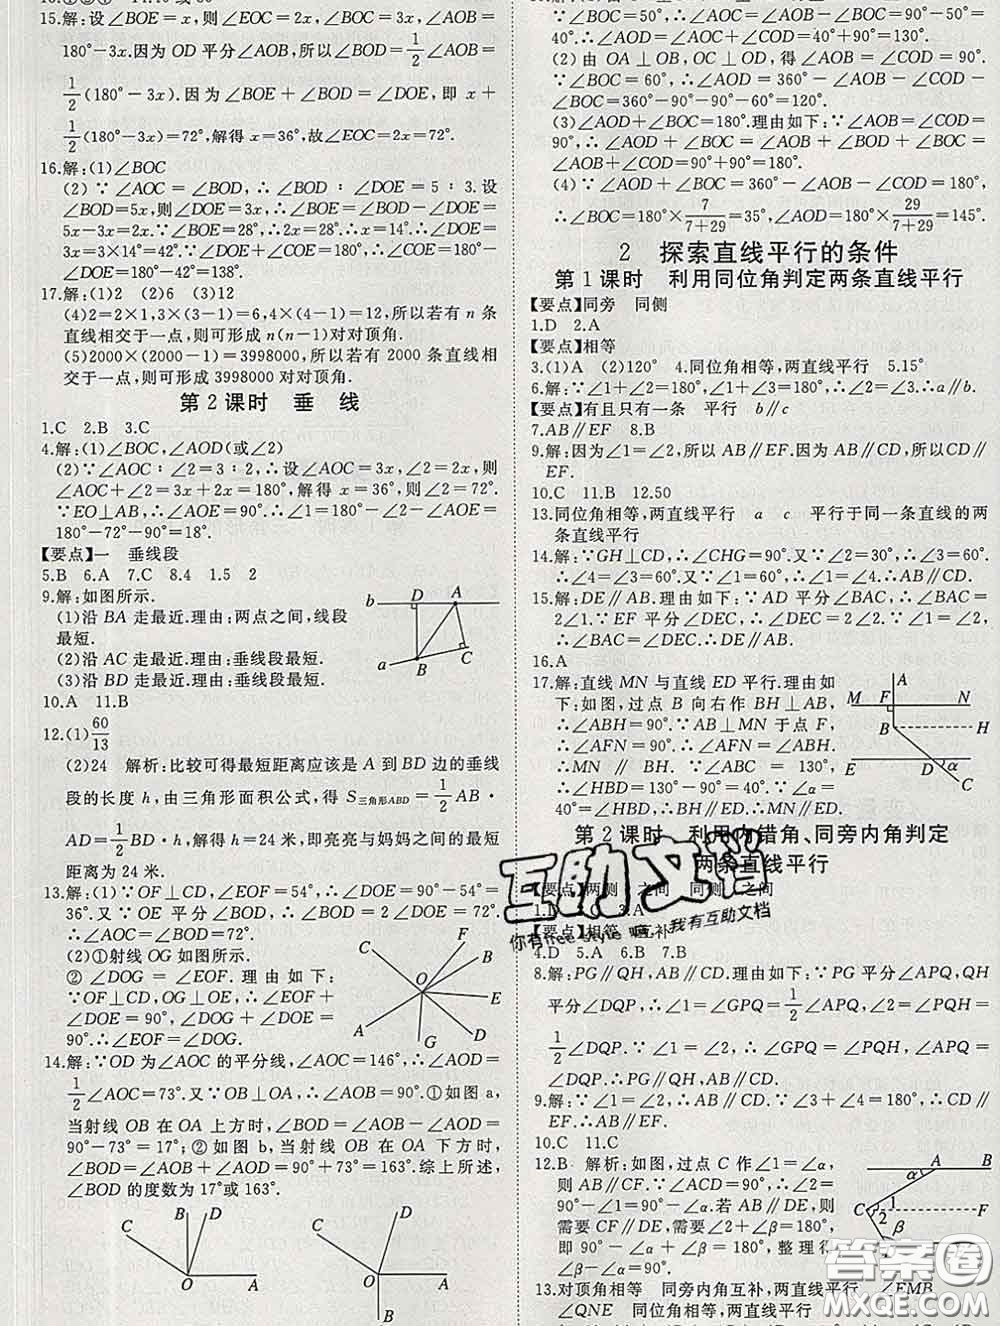 15.解:设∠BOE=x,则∠EOC=2x,∠BOC=3x,∠AOB=
180°-3x.因为 OD 平分∠AOB,所以∠BOD=1/2∠AOB=
1/2(180°-3x).因为∠BOE+∠BOD=∠DOE,即 x+
1/2(180°-3x)=72°,解得 x=36°,故∠EOC=2x=72°.
16.解:(1)∠BOC
(2)∵∠AOC=∠BOD,∴∠BOD∶∠DOE=5∶3.设
∠BOD=5x,则∠DOE=3x,∴∠BOE=∠BOD-∠DOE=
5x-3x=2x.∵∠BOE=28°,∴2x=28°.∴x=14°.∴∠DOE=
3x=3×14°=42°.∵∠DOE+∠COE=180°,∴∠COE=180°-
∠DOE=180°-42°=138°.
17.解:(1)2 (2)6 (3)12
(4)2=2×1,3×(3-1)=6,4×(4-1)=12,所以若有 n 条
直线相交于一点,则可形成 n(n-1)对对顶角.
(5)2000×(2000-1)=3998000,所以若有 2000 条直线相
交于一点,则可形成 3998000 对对顶角.
第 2 课时 垂 线
1.C 2.B 3.C
4.解:(1)∠BOC,∠AOD(或∠2)
(2)∵∠AOC∶∠2=3∶2,∴设∠AOC=3x,∠2=2x,则
∠AOC+∠2=3x+2x=180°,解得 x=36°,则∠2=72°.
∵EO⊥AB,∴∠AOE=90°.∴∠1=180°-∠2-∠AOE=
180°-72°-90°=18°.
【要点】一 垂线段
5.B 6.A 7.C 8.4 1.5 2
9.解:如图所示.
(1)沿 BA 走最近.理由:两点之间,线段
最短.
(2)沿 AC 走最近.理由:垂线段最短.
(3)沿 BD 走最近.理由:垂线段最短.
b D A
a B C
10.A 11.B
12.(1)60/13
(2)24 解析:比较可得最短距离应该是 A 到 BD 边的垂线
段的长度 h,由三角形面积公式,得 S三角形ABD=1/2AB·
AD=1/2BD·h,解得 h=24 米,即亮亮与妈妈之间的最短
距离为 24 米.
13.解:(1)∵OF⊥CD,∴∠BOF=90°-∠BOD=90°-54°=
36°.又∵OE 平分∠BOD,∴∠BOD=2∠DOE=72°,
∴∠AOC=∠BOD=72°.
(2)①射线 OG 如图所示.
②∠DOG=∠EOF.理由如下:
∵OF⊥CD,OG⊥OE,∴∠EOF+
∠DOE=90°,∠DOG+∠DOE=
90°.∴∠EOF=∠DOG.
C F B O E A G D
14.解:∵OD 为∠AOC 的平分线,∠AOC=146°,∴∠AOD=
1/2∠AOC=73°.又∵OB⊥OA,∴∠AOB=90°.①如图 a,
当射线 OB 在 OA 上方时,∠BOD=∠AOB-∠AOD=
90°-73°=17°;②如图 b,当射线 OB 在 OA 下方时,
∠BOD=∠AOB+∠AOD=90°+73°=163°.综上所述,
∠BOD 的度数为 17°或 163°.
C B D O A
C D O A B
∵∠BOC=50°,∴∠AOB=∠AOC-∠BOC=90°-50°=
40°.∴∠AOD=∠AOB+∠BOD=40°+90°=130°.
(2)由 OA⊥OB,OC⊥OD,得∠AOB=∠COD=90°.
∵∠BOC=60°,∴∠AOD=360°-∠AOB-∠COD-
∠BOC=360°-90°-90°-60°=120°.
(3)∠AOD+∠BOC=180°.理由如下:∵∠AOD+∠BOC+
∠AOB+∠COD=360°,∴∠AOD+∠BOC=360°-∠AOB-
∠COD=360°-90°-90°=180°.
(4)∵∠AOD+∠BOC=360°-∠AOB-∠COD=180°,
∴∠BOC=180°×7/(7+29)=35°,∠AOD=180°×29/(7+29)=145°.
2 探索直线平行的条件
第 1 课时 利用同位角判定两条直线平行
【要点】同旁 同侧
1.D 2.A
【要点】相等
3.(1)A (2)120° 4.同位角相等,两直线平行 5.15°
6.解:∵∠1+∠2=180°,∠1+∠3=180°,∴∠2=∠3.∴a∥b.
【要点】有且只有一条 平行 b∥c
7.AB∥EF 8.B
9.解:因为∠1=∠2,所以 AB∥EF.因为 AB∥CD,所以 CD∥
EF.
10.C 11.B 12.50
13.同位角相等,两直线平行 a c 平行于同一条直线的两
条直线平行
14.解:∵GH⊥CD,∴∠CHG=90°.又∵∠2=30°,∴∠3=60°.
∴∠4=∠3=60°.又∵∠1=60°,∴∠1=∠4.∴AB∥CD.
15.解:DE∥AB.理由如下:∵AD 平分∠BAC,∴∠BAC=
2∠1.∵EF 平分∠DEC,∴∠DEC=2∠2.∵∠1=∠2,
∴∠BAC=∠DEC.∴DE∥AB.
16.A
17.解:直线 MN 与直线 ED 平行.理由如
下:如图,过点 B 向右作 BH⊥AB,
∴∠ABH=90°.∵AB⊥MN 于点 F,
∴∠AFN=90°.∴∠AFN=∠ABH.
∴MN∥BH.∵∠ABC=130°,
∴∠HBD=130°-90°=40°.∵∠α=
40°=∠HBD,∴BH∥ED.∴MN∥ED.
A M F N B H E D α C
第 2 课时 利用内错角、同旁内角判定
两条直线平行
【要点】两侧 之间 同侧 之间
【要点】相等 互补
4.D 5.A 6.B 7.B
8.解:PG∥QH,AB∥CD.理由如下:∵PG 平分∠APQ,QH
平分∠DQP,∴∠1=∠GPQ=1/2∠APQ,∠2=∠PQH=
1/2∠DQP.又∵∠1=∠2,∴∠GPQ=∠PQH,∠APQ=
∠DQP.∴PG∥QH,AB∥CD.
9.解:∵∠1=∠2,∴AB∥CD.∵∠3+∠4=180°,∴CD∥
EF.∴AB∥EF.
10.C 11.C
12.B 解析:如图,过点 C 作∠1=∠α,
则 AB∥CF.∵∠ACD=90°,∴∠2=
90°-∠1=90°-∠α.若 AB∥DE,则
需要 CF∥DE,需满足∠2+∠β=180°,
即 90°-∠α+∠β=180°,整理得
∠β-∠α=90°.
A B α C 1 2 β
13.对顶角相等 同旁内角互补,两直线平行 ∠EMB
∠QNE 同位角相等,两直线平行
互助文档
你有free style 嘛 我有互助文档
答案圈
MXQE.COM